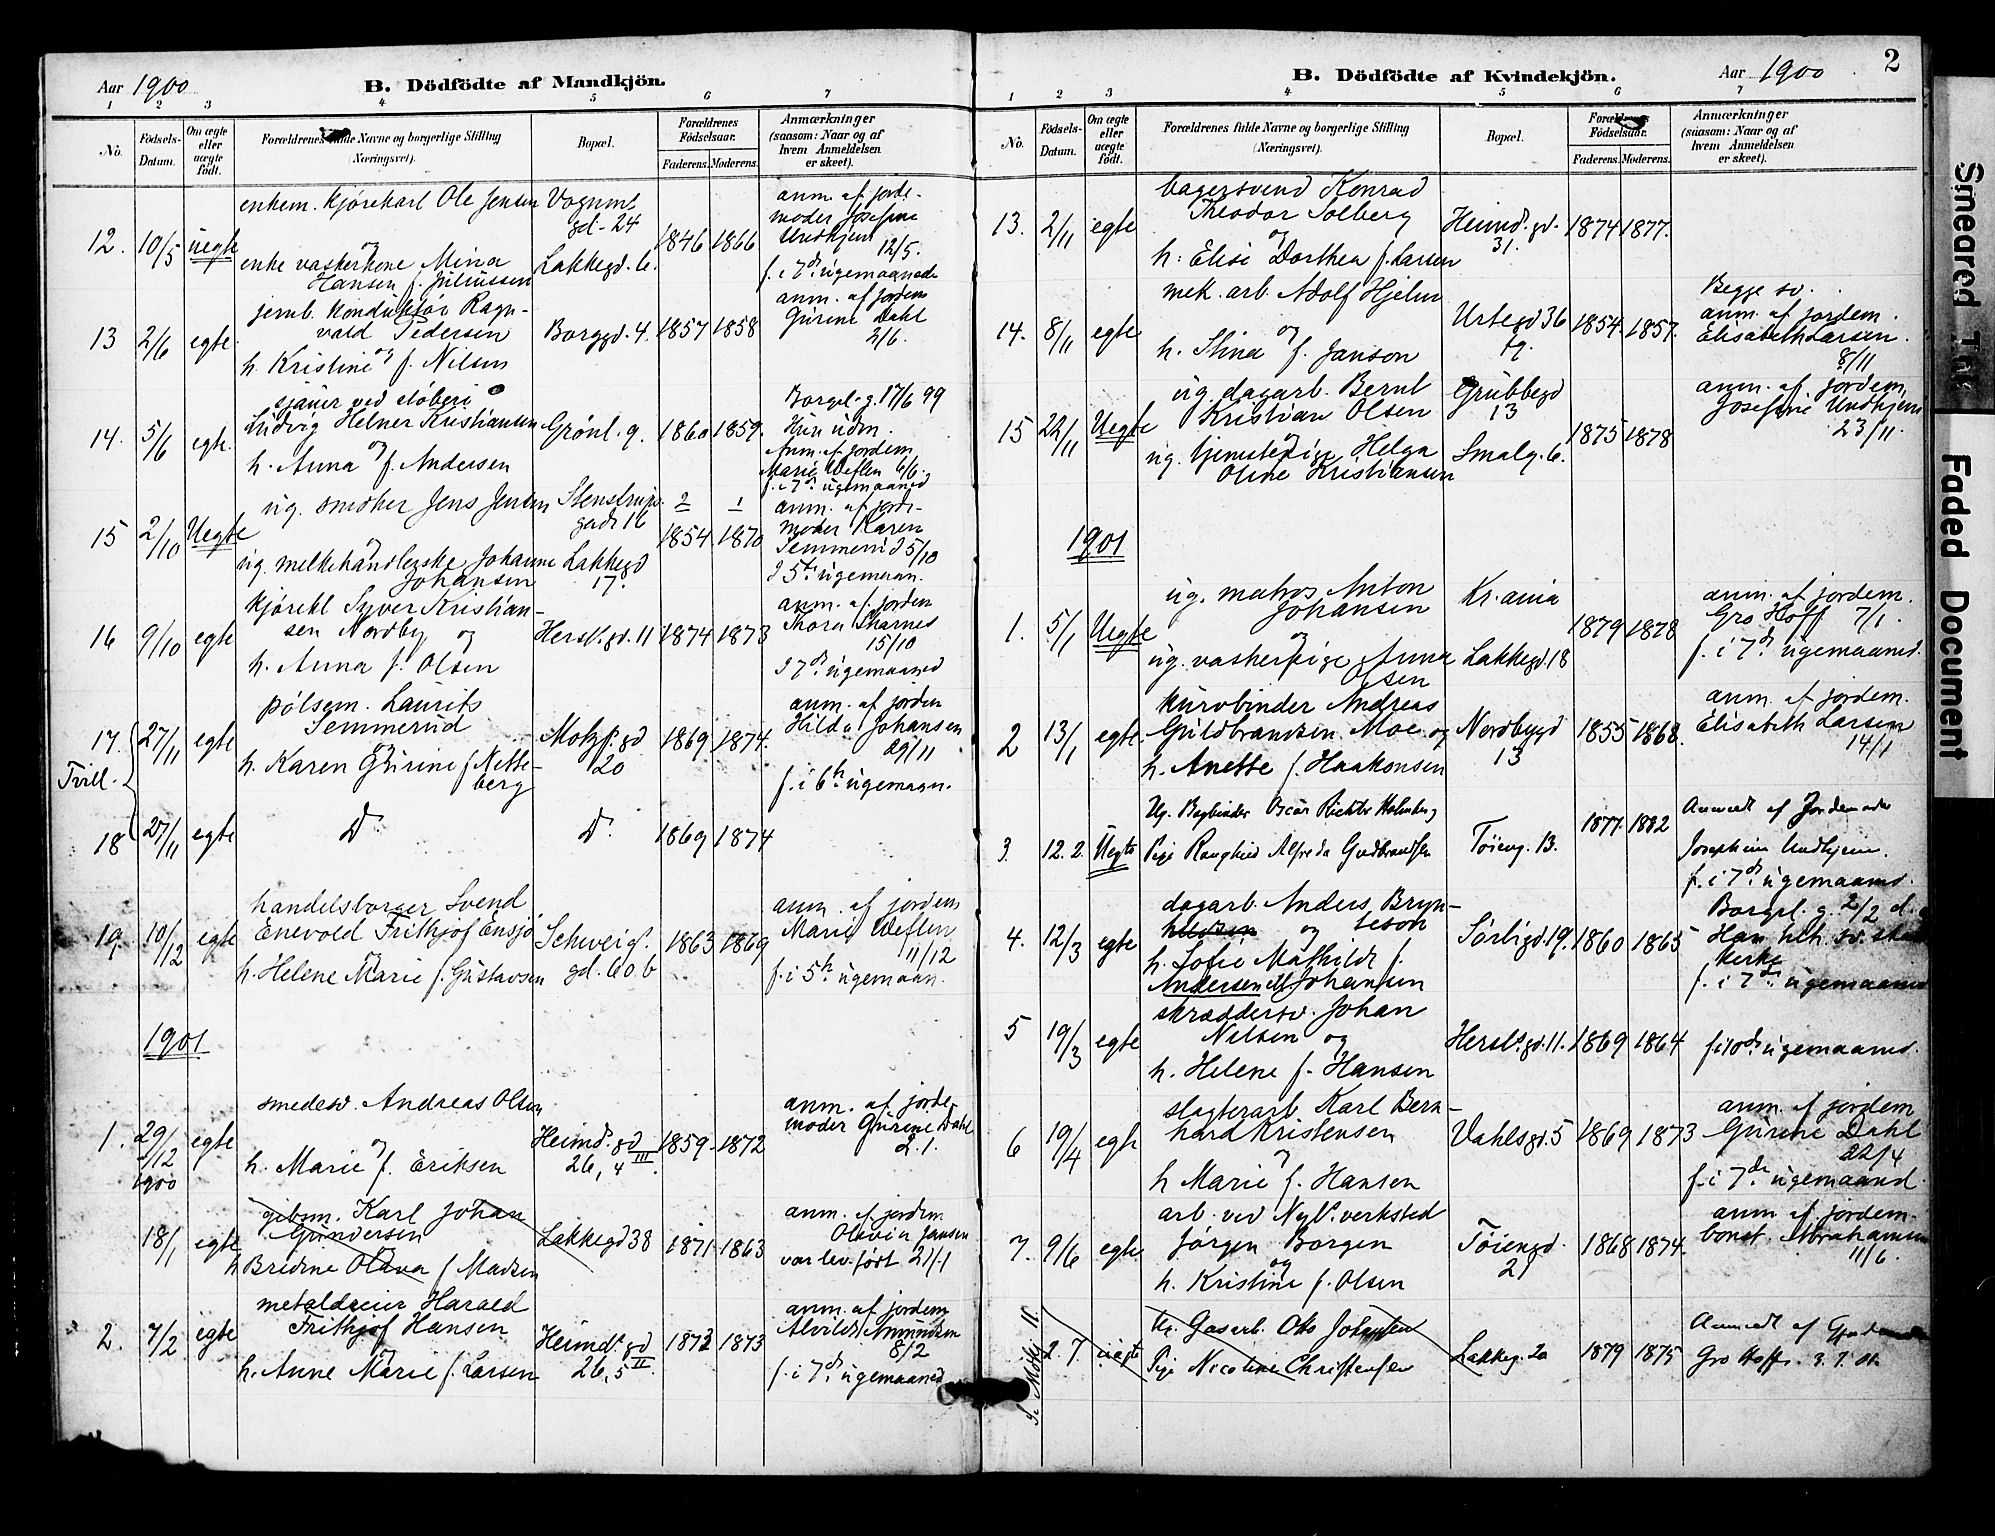 Aar 1900
B. Dödfödte af Mandkjön.
1 2 3 4 5 6 7
No.
Födsels-Datum.
Om ægte eller uægte födt.
Forældrenes fulde Navne og borgerlige Stilling (Næringsvei).
Bopæl.
Forældrenes Födselsaar.
Faderens. Moderens.
Anmærkninger (saasom: Naar og af hvem Anmeldelsen er skeet).
enkem. kjørekarl Ole Jensen Vognmt
gd. 24
anm. af jorde-
moder Josefine
Undhjem
12/5.
12. 10/5 uegte og 1846 1866
enke vaskerkone Mina Lakkegd. 6.
Hansen f. Juliussen
f. i 7d. ugemaaned
jernb. konduktør Ragn-
vald Pedersen
13 2/6 egte. og Borggd. 4. 1857 1858
h. Kristine f. Nilsen
anm. af jordem
Gurine Dahl
2/6.
sjauer ved støberi
Ludvig Helmer Kristiansen
14. 5/6 egte. og Grønl. 9. 1860 1859.
h. Anna f. Andersen
Borgel. g. 17/6 99
Hun udm.
Anm. af jordem
Marie Weflen 6/6.
f. i 7d. ugemaaned
ug. smedker Jens Jensen Stenstrups
gade 16
2 1
15 2/10 Uegte og 1854 1870
ug. melkehandlerske Johanne Lakkegd
Johansen 17.
anm. af jorde-
moder Karen
Semmerud 5/10
I 5te ugemaan.
kjørekl Syver Kristian-
sen Nordby og
16 9/10 egte Hersl. gd. 11 1874 1873
h. Anna f. Olsen
anm. af jordem
Thora Skarnes
15/10
I 7d ugemaaned
pølsem. Laurits
Semmerud
17. 27/11 egte og Motzf. gd 20 1869 1874.
Tvill.
h. Karen Gurine f. Nette-
berg
anm. af jordem
Hilda Johansen
29/11
f. i 6h ugemaan.
18 27/11 egte Do Do 1869 1874
handelsborger Svend
Enevold Frithjof Ensjø
19. 10/12 egte og Schweigl. gd. 60 b 1863 1869
h. Helene Marie f. Gustavsen
anm. af jordem
Marie Weflen
11/12
f. i 5h ugemaan.
1901
smedesv. Andreas Olsen
1. 29/12 1900 egte og Heimd. gd 26, 4 III. 1859 1872
h. Marie f. Eriksen
anm. af jorde-
moder Gurine Dahl
2.1.
gibsm. Karl Johan
Gundersen
18/1 egte Lakkegd 38 1871 1863
h Bredine Olava f. Madsen
anm. af jordem
Olavia Jansen
var lev. født 21/1
metaldreier Harald
Frithjof Hansen
2. 7/2 egte og Heimd. gd 26, 5 II. 1873 1873
h. Anne Marie f. Larsen
anm. af jordem
Alvilde Amundsen
8/2
f. i 7d ugemaaned
B. Dödfödte af Kvindekjön.
Aar 1900
2
1 2 3 4 5 6 7
No.
Födsels-Datum.
Om ægte eller uægte födt.
Forældrenes fulde Navne og borgerlige Stilling (Næringsvei).
Bopæl.
Forældrenes Födselsaar.
Faderens. Moderens.
Anmærkninger (saasom: Naar og af hvem Anmeldelsen er skeet).
bagersvend Konrad
Theodor Solberg
13. 2/11 egte og Heimd. gd. 31. 1874 1877.
h. Elise Dorthea f. Larsen
mek. arb. Adolf Hjelm
14. 8/11 egte og Urtegd 36 1854. 1857.
h. Stina f. Janson
Begge sv.
anm. af jordem.
Elisabeth Larsen.
8/11
ug. dagarb. Bernt Grubbegd
Kristian Olsen 13
15 22/11 Uegte og 1875 1878
ug. tjenestepige Helga Smalg. 6.
Oline Kristiansen
anm. af jordem.
Josefine Undhjem
23/11.
1901
ug. matros Anton Kr.ania
Johansen
1. 5/1 Uegte og 1879 1878
ug. vaskerpige Anna Lakkegd. 18
Olsen
anm. af jordem.
Gro Hoff 7/1.
f. i 7d. ugemaaned.
kurvbinder Andreas
2 13/1 egte. Guldbrandsen Moe og Nordbygd 13 1855 1868.
h. Anette f. Haakonsen
anm. af jordem.
Elisabeth Larsen
14/1
Ug. Bogbinder Oscar Richter Holmberg
3. 12. 2. Uegte Pige Ranghild Alfreda Gudbrandsen Tøieng. 13. 1877. 1882
Anmeldt af Jordemoder
Josephine Undhjem.
f. i 7d. ugemaaned.
dagarb. Anders Bryn-
og teson
4. 12/3 egte Sørligd 19. 1860 1865
h. Sofie Mathilde f.
Andersen Johansen
Borgel. g. 2/2
Han
kirke
f. i 7d. ugemaaned
skræddersv. Johan
5 19/3 egte Nilsen og Hersl. gd. 11. 1869 1864
h. Helene f. Hansen
f. i 10d. ugemaaned.
slagterarb. Karl Bern-
6 19/4 egte hard Kristensen Vahlsgd. 5 1869 1873
og
h Marie f. Hansen
anm. af jordem
Gurine Dahl
22/4
f. i 7de ugemaaned.
arb. ved Nyl. verksted
7. 9/6 egte. Jørgen Borgen Tøiengd. 21 1868 1874.
og
h. Kristine f. Olsen
anm. af jordem.
const. Abrahamsen
11/6.
Ug. Gasarb. Otto Johansen
2. 7. uegte Pige Nicoline Christensen Lakkeg. 20 1879 1875
Anmeldt af
Gro Hoff. 3. 7. 01.
Smeared Ink
Faded Document